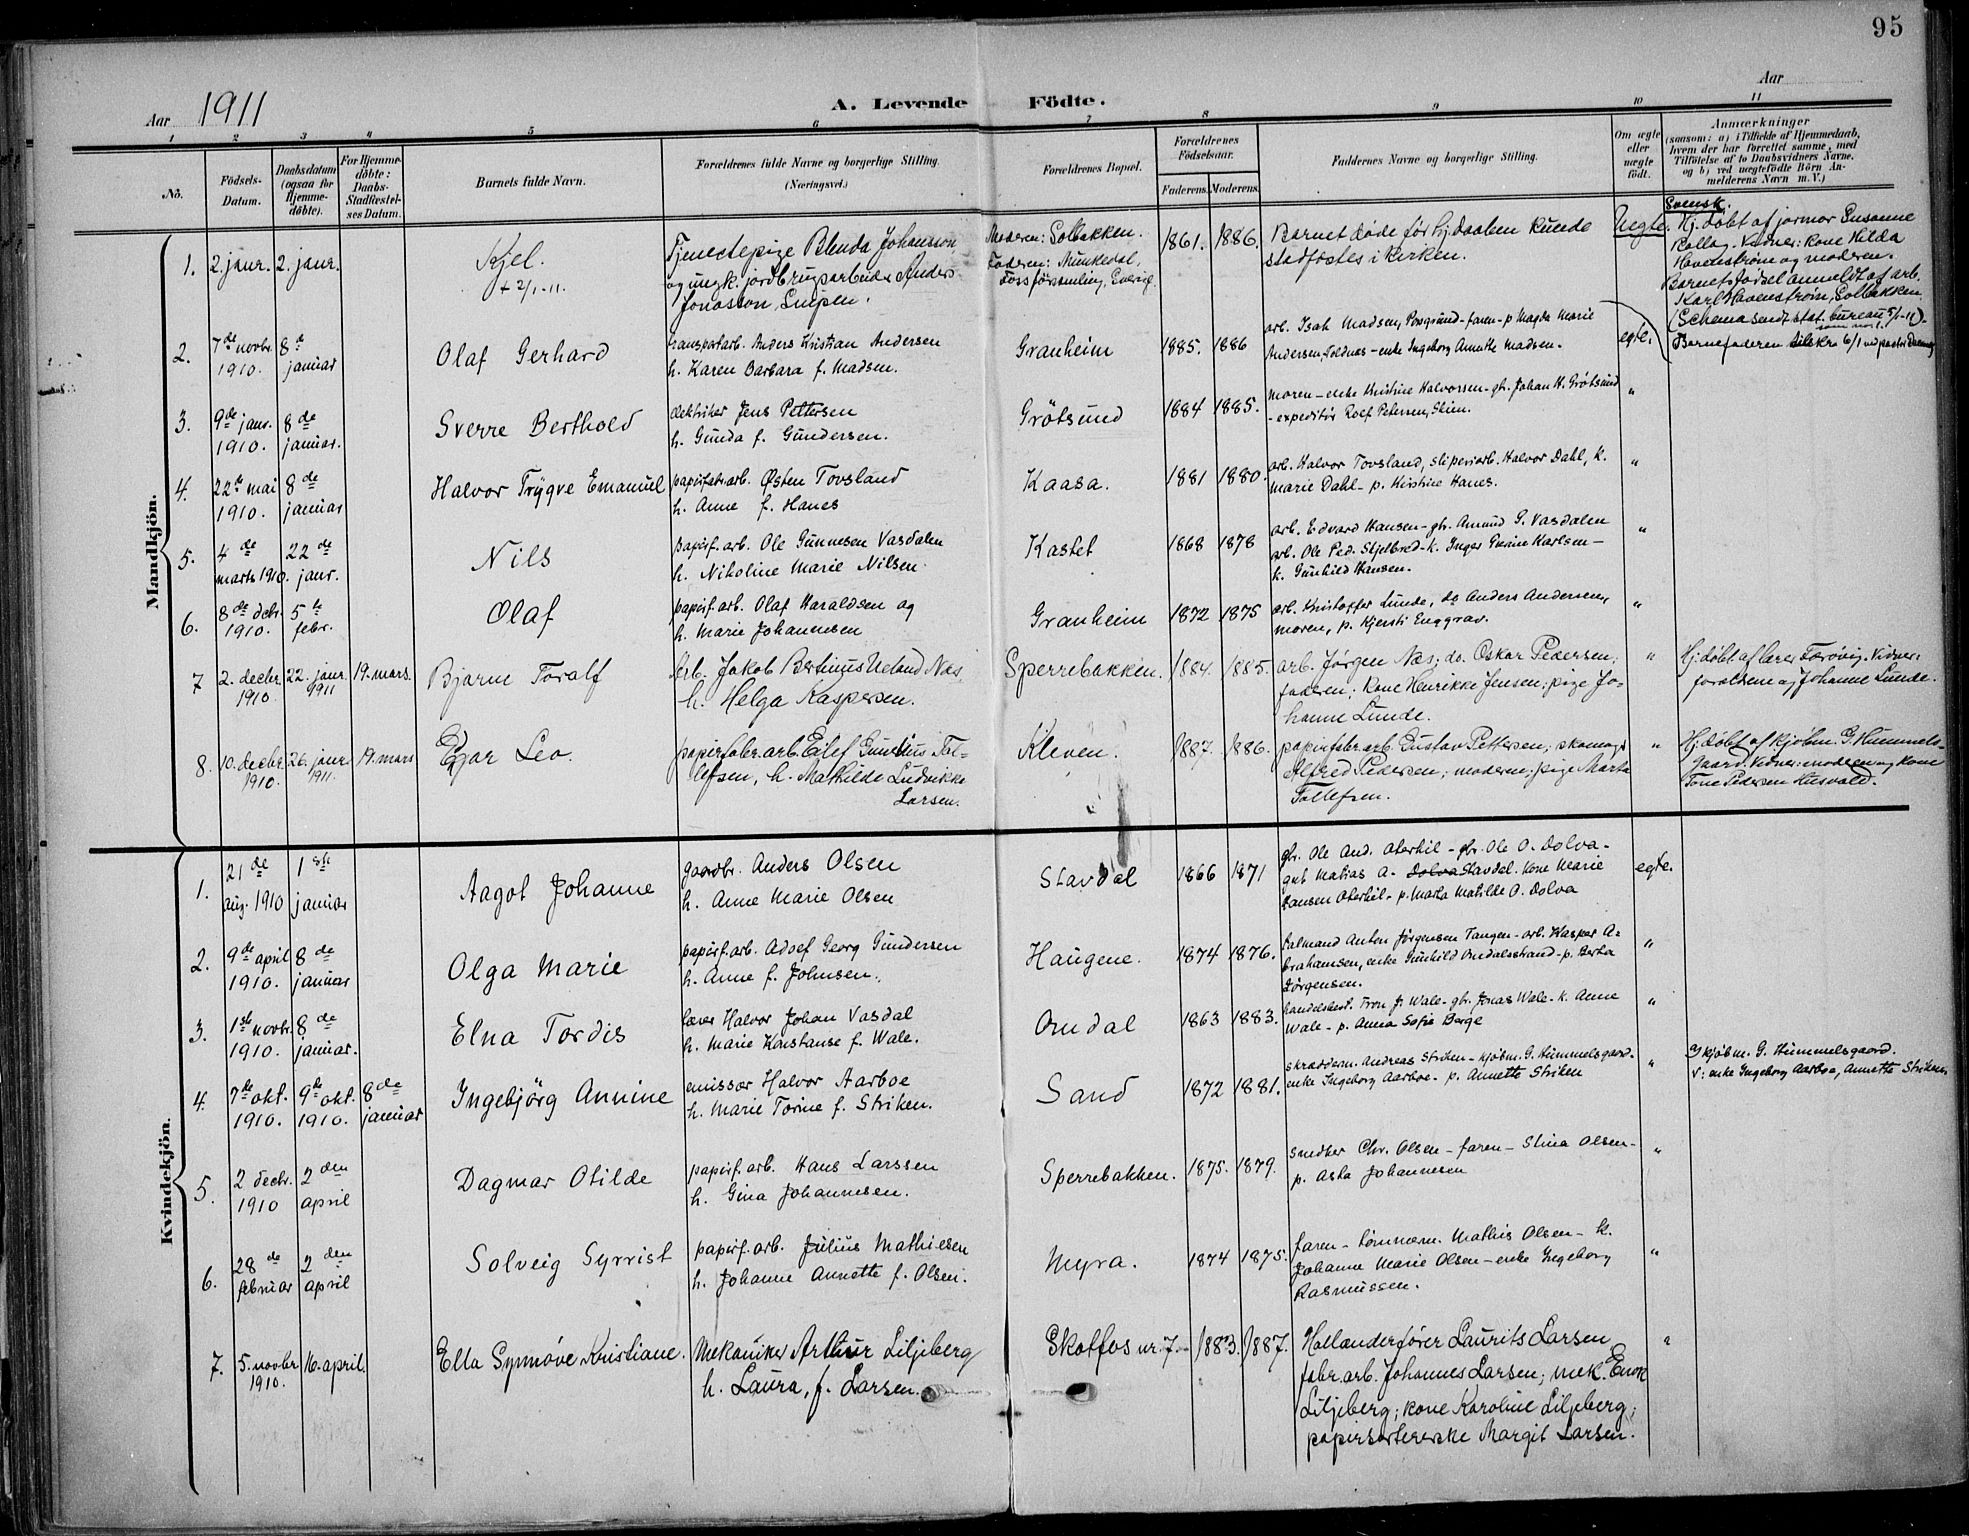 95
Aar 1911
A. Levende Födte.
Aar
1 2 3 4 5 6 7 8 9 10 11
No.
Födsels-Datum.
Daabsdatum (ogsaa for Hjemmedöbte).
For Hjemmedöbte: Daabs-Stadfæstelses Datum.
Barnets fulde Navn.
Forældrenes fulde Navne og borgerlige Stilling.
(Næringsvei.)
Forældrenes Bopæl.
Forældrenes Födselsaar.
Faderens. Moderens.
Faddernes Navne og borgerlige Stilling.
Om ægte eller uægte födt.
Anmærkninger
(saasom: a) i Tilfælde af Hjemmedaab, hvem der har forrettet samme, med Tilföielse af to Daabsvidners Navne, og b) ved uægtefödte Börn Anmelderens Navn m. V.)
Mandkjön.
1. 2. janr. 2. janr. Kjel. + 2/1-11.
Tjenestepige Blenda Johansson,
og ungk. jordbrugsarbeider Anders
Jonasson,
Moderen: Solbakken.
Faderen: Munkedal,
Foss församling, Sverig.
1861. 1886.
Barnet döde før hj.daaben kunde
stadfæstes i kirken.
Uegte.
Svensk.
Hj. døbt af jormor Susanne
Rollag. Vidner: kone Hilda
Havenström og moderen.
Barnets fødsel anmeldt af arb.
Karl Havenström, Solbakken.
(Schema sendt stat. bureau 5/1-11).
som no. 1.
Barnefaderen
2. 7de novbr. 1910. 8de januar
Olaf Gerhard
transportarb. Anders Kristian Andersen
h. Karen Barbara f. Madsen.
Granheim
1885. 1886
arb. Isak Madsen, Porsgrund - faren - p Magda Marie
Andersen, Foldnæs - enke Ingeborg Annette Madsen.
egte.
3. 9de janr. 1910. 8de januar.
Sverre Berthold
elektriker Jens Pettersen
h. Gunda f. Gundersen.
Grötsund
1884 1885.
moren - enke Kristine Halvorsen - gb. Johan H. Grötsund
- expeditör Rolf Petersen, Skien.
"
4. 22de mai 1910. 8de januar
Halvor Trygve Emanuel
papirfabr.arb. Østen Tovsland
h. Anne f. Hanes
Kaasa.
1881 1880.
arb. Halvor Tovsland, sliperiarb. Halvor Dahl, k.
Marie Dahl - p. Kirstine Hanes.
"
5. 4de marts 1910. 22de janr.
Nils
papirf.arb. Ole Gunnesen Vasdalen
h. Nikoline Marie Nilsen.
Kastet
1868 1878
arb. Edvard Hansen - gb. Amund G. Vasdalen
arb. Ole Ped. Stjelbred - k. Inger Karlsen -
k. Gunhild Hansen.
"
6. 8de decbr. 1910. 5te febr.
Olaf
papirf.arb. Olaf Haraldsen og
h. Marie Johannesen
Granheim
1872 1875
arb. Kristoffer Lunde, do Anders Andersen,
moren, p. Kjersti Enggrav.
"
7 2. decbr. 1910. 22. janr. 1911 19. mars.
Bjarne Toralf
Arb. Jakob Bertinius Ueland Næs
h. Helga Kaspersen.
Sperrebakken.
1884. 1885.
arb. Jørgen Næs; do. Oskar Pedersen;
faderen; kone Henrikke Jensen; pige Johanne
Lunde.
"
Hj. døbt af lærer Farövig. Vidner:
forældrene og Johanne Lunde.
8. 10. decbr. 1910. 26. janr. 1911. 19. mars
Egar Leo.
papirfabr.arb. Eilef Gunelius Tollefsen,
h. Mathilde Ludvikke
Larsen.
Kleven.
1887. 1886.
papirfabr.arb. Gustav Pettersen; skomag.
Alfred Pedersen; moderen; pige Marta
Tollefsen.
"
Hj. døbt af kjøbm. G. Hummelsgaard.
Vidner: moderen og kone
Tone Pedersen Husvald.
Kvindekjön.
1. 21de aug. 1910 1ste januar
Aagot Johanne
gaardbr. Anders Olsen
h. Anne Marie Olsen
Stavdal
1866 1871
gbr. Ole And. Oterhil - gbr. Ole O. Dolva -
gut Matias A. Dolva Stavdal. kone Marie
Hansen Oterhil. p. Marta Matilde O. Dolva
egte.
2. 9de april 1910. 8de januar
Olga Marie
papirf.arb. Adolf Georg Gundersen
h. Anne f. Johnsen.
Haugene.
1874 1876.
Salmand Anton Jørgensen Tangen - arb. Kasper Abrahamsen,
enke Gunhild Omdalsstrand - p. Berta
Jörgensen.
"
3. 1ste novbr. 1910. 8de januar.
Elna Tordis
lærer Halvor Johan Vasdal
h. Marie Konstanse f. Wale.
Omdal
1863 1883.
handelsbest. Tron J. Wale - gbr. Jonas Wale - k. Anne
Wale - p. Anna Sofie Berge
"
4. 7de okt. 1910. 9de okt. 1910. 8de januar
Ingebjörg Annine
emissær Halvor Aarboe
h. Marie Torine f. Striken.
Sand
1872 1881.
skrædderm. Andreas Striken - kjøbm. G. Hummelsgaard.
enke Ingeborg Aarboe - p. Annette Striken
"
kjøbm. G. Hummelsgaard.
V: enke Ingeborg Aarboe, Annette Striken
5. 2 decbr. 1910 2den april
Dagmar Otilde
papirf.arb. Hans Larssen
h. Gina Johannesen.
Sperrebakken.
1875. 1879.
snedker Chr. Olsen - faren - Stina Olsen -
p. Asta Johannesen
"
6. 28de februar 2den april
Solveig Syrrist
papirf.arb. Julius Mathiesen
h. Johanne Annette f. Olsen.
Myra.
1874 1875.
faren - tømmerm. Mathis Olsen - k.
Johanne Marie Olsen - enke Ingeborg
Rasmussen.
"
7. 5. novbr 1910. 16. april.
Ella Synnöve Kristiane.
Mekaniker Arthur Liljeberg
h. Laura, f. Larsen.
Skotfos nr. 7.
1883. 1887.
Hollænderfører Laurits Larsen
fabr.arb. Johannes Larsen; mek. Enok
Liljeberg; kone Karoline Liljeberg;
papirsorterske Margit Larsen.
"